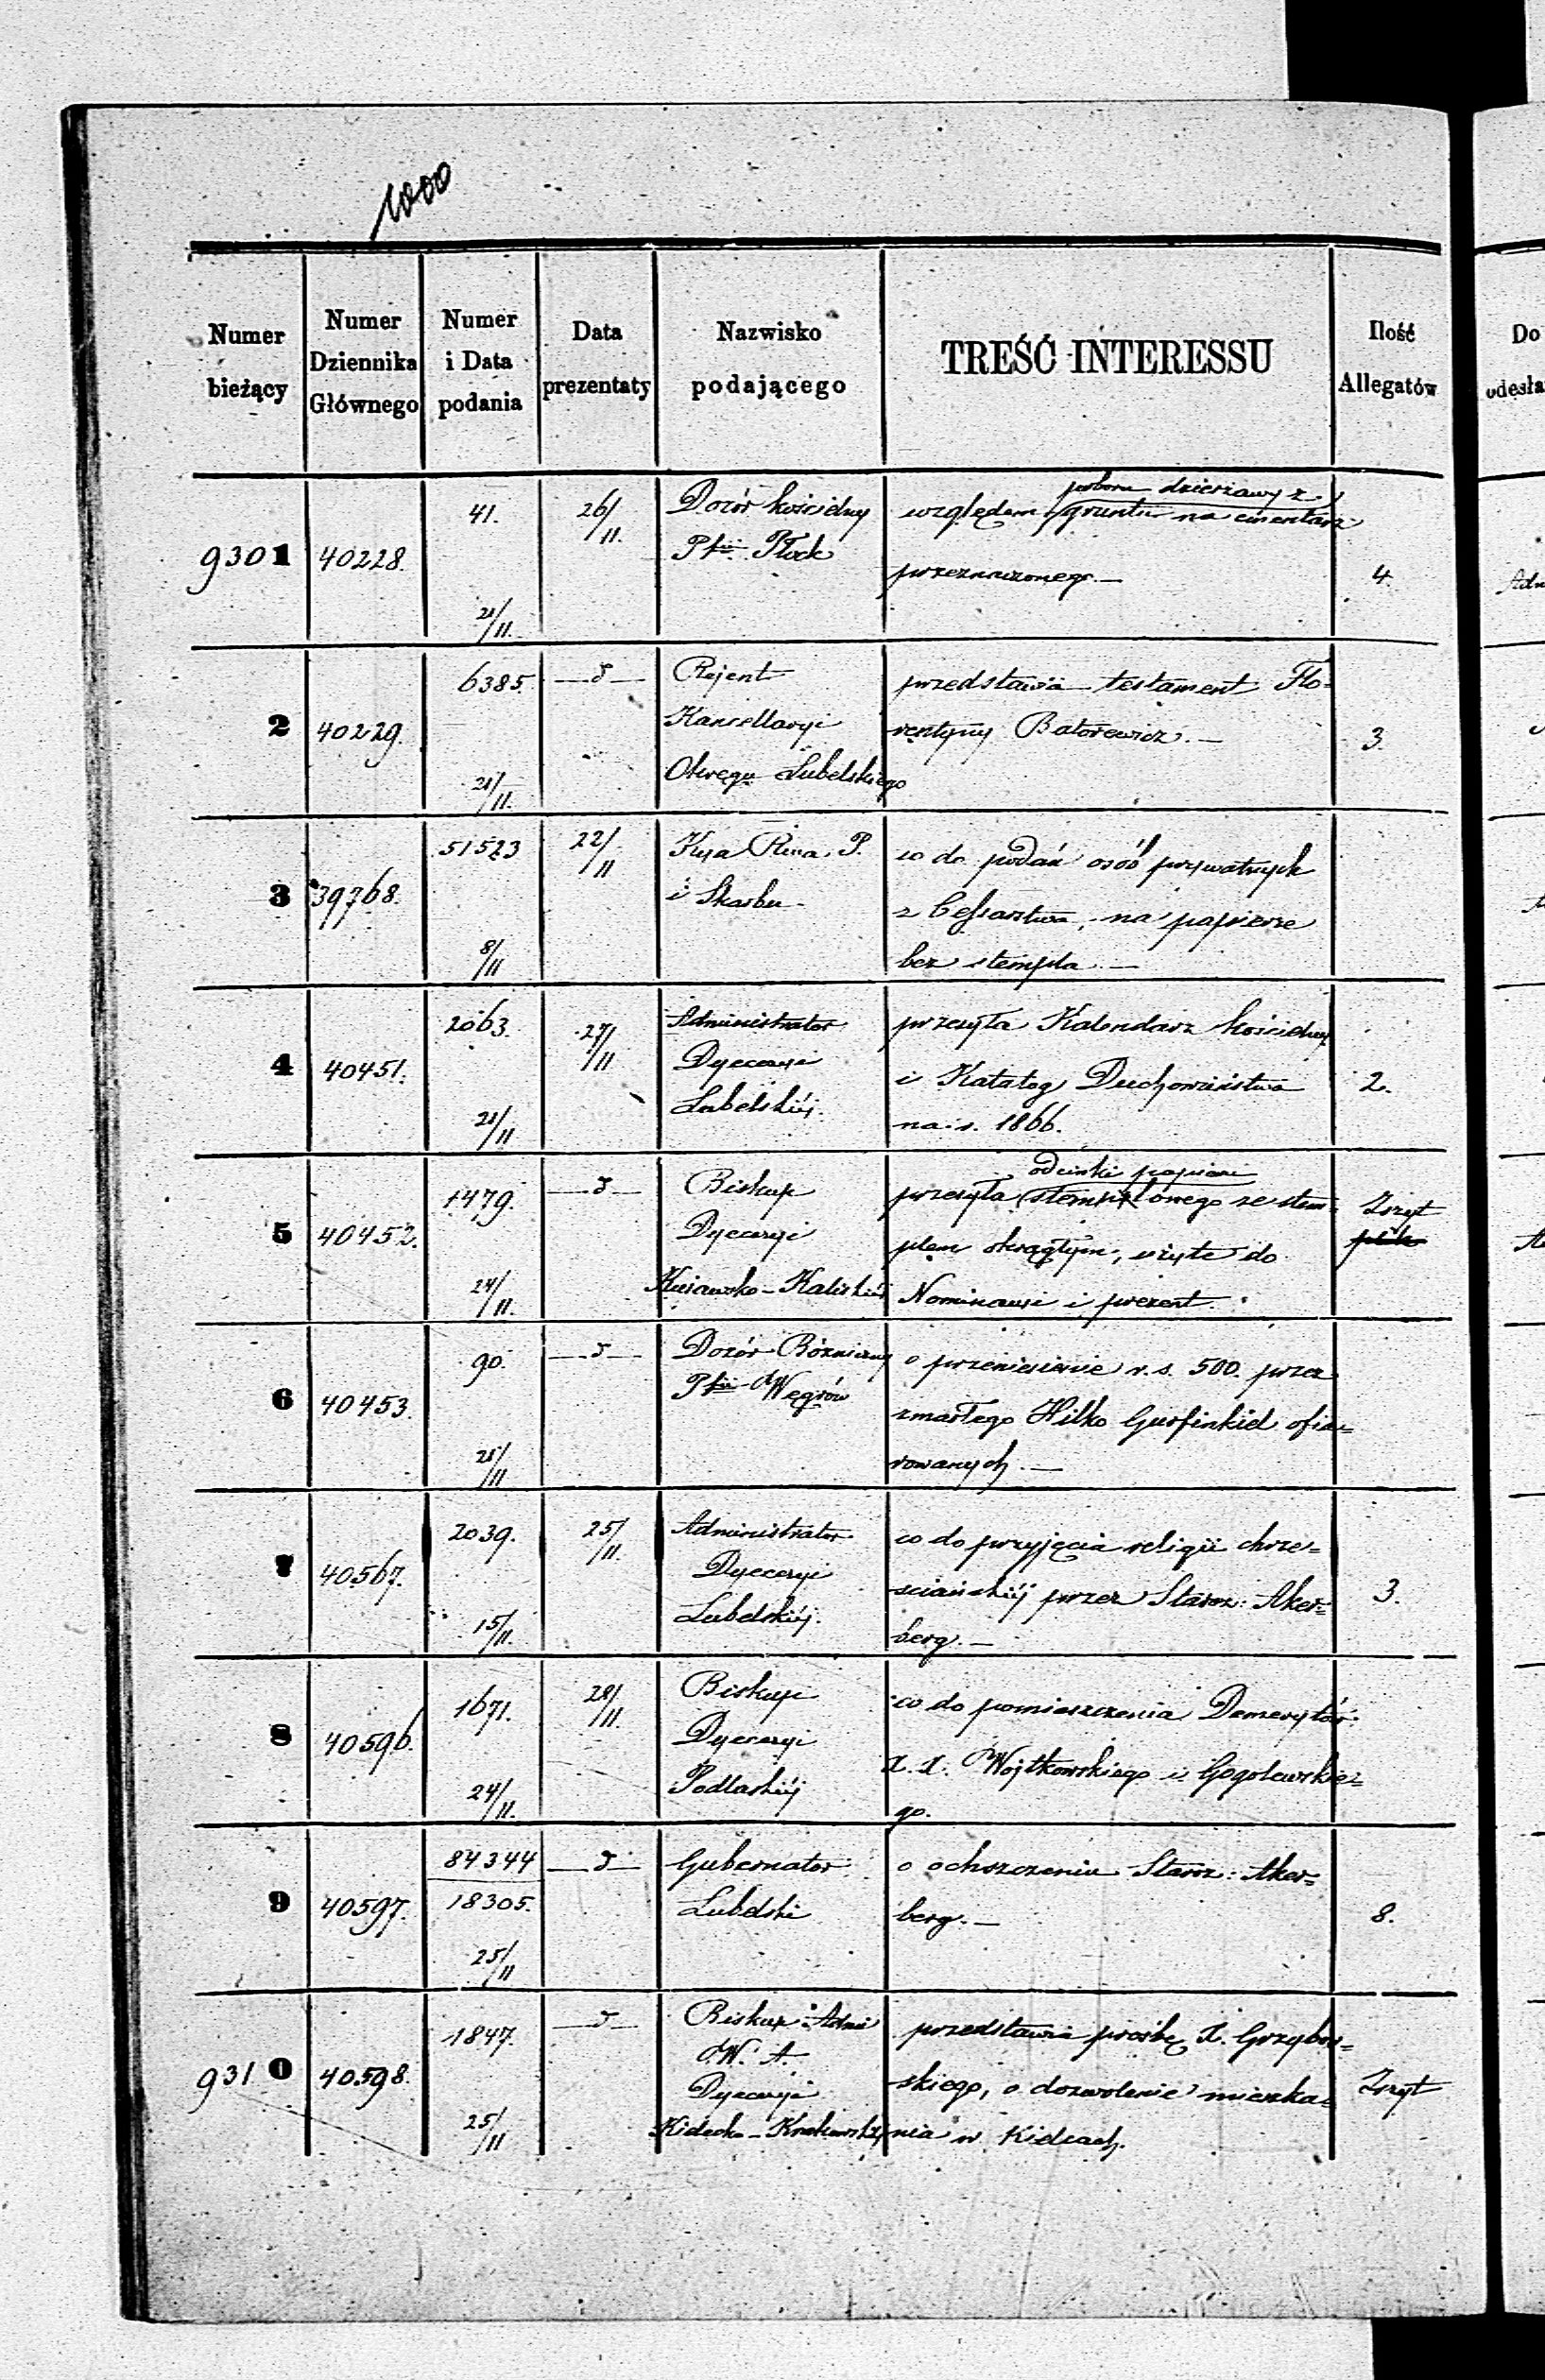 1000
Numer bieżący
Numer Dziennika Głównego
Numer i Data podania
Data prezentaty
Nazwisko podającego
TREŚĆ INTERESSU
Ilość Allegatów
Do odesła
9301 40228. 41. 21/11. 26/11. 4.
Dozór kościelny
Ptu Płock
poboru dzierżawy z
względem gruntu na cmentarz
przeznaczonego. —
2 40229. 6385. 21/11. —d— 3.
Rejent
Kancellaryi
Okręgu Lubelskiego
przedstawia testament Flo-
rentyny Batorewicz. —
3 39768. 51523 8/11 22/11
Kssa Rząa P.
i Skarbu
co do podań osób prywatnych
z Cessarstwa, na papierze
bez stempla. —
4 40451. 2063. 21/11 27/11 2.
Administrator
Dyecezyi
Lubelskiéj.
przesyła Kalendarz kościelny
i Katalog Duchowieństwa
na r. 1866.
5 40452. 1479. 24/11. —d— Zszyt
plik
Biskup
Dyecezyi
Kujawsko-Kaliskiéj
odcinki papieru
przesyła stemplowego ze stem-
plem okrągłym, użyte do
Nominacyi i prezent.
6 40453. 90. 21/11 —d—
Dozór Bóżniczny
Ptu Węgrów
o przeniesienie r.s. 500. przez
zmarłego Hilko Gurfinkiel ofia=
rowanych. —
7 40567. 2039. 15/11. 25/11. 3.
Administrator
Dyecezyi
Lubelskiéj.
co do przyjęcia religii chrze=
sciańskiéj przez Staroz: Aker=
berg. —
8 40596. 1671. 24/11. 28/11.
Biskup
Dyecezyi
Podlaskiéj
co do pomieszczenia Demerytów
X. X. Wojtkowskiego i Gogolewskie=
go.
9 40597. 84344 18305. 25/11 —d— 8.
Gubernator
Lubelski
o ochrzczeniu Staroz: Aker=
berg. —
9310 40598. 1847. 25/11 —d— Zszyt
Biskup Admi
W. A.
Dyecezyi
Kielecko-Krakowskiéj
przedstawia prośbę X. Grzybow=
skiego, o dozwolenie mieszka=
nia w Kielcach.